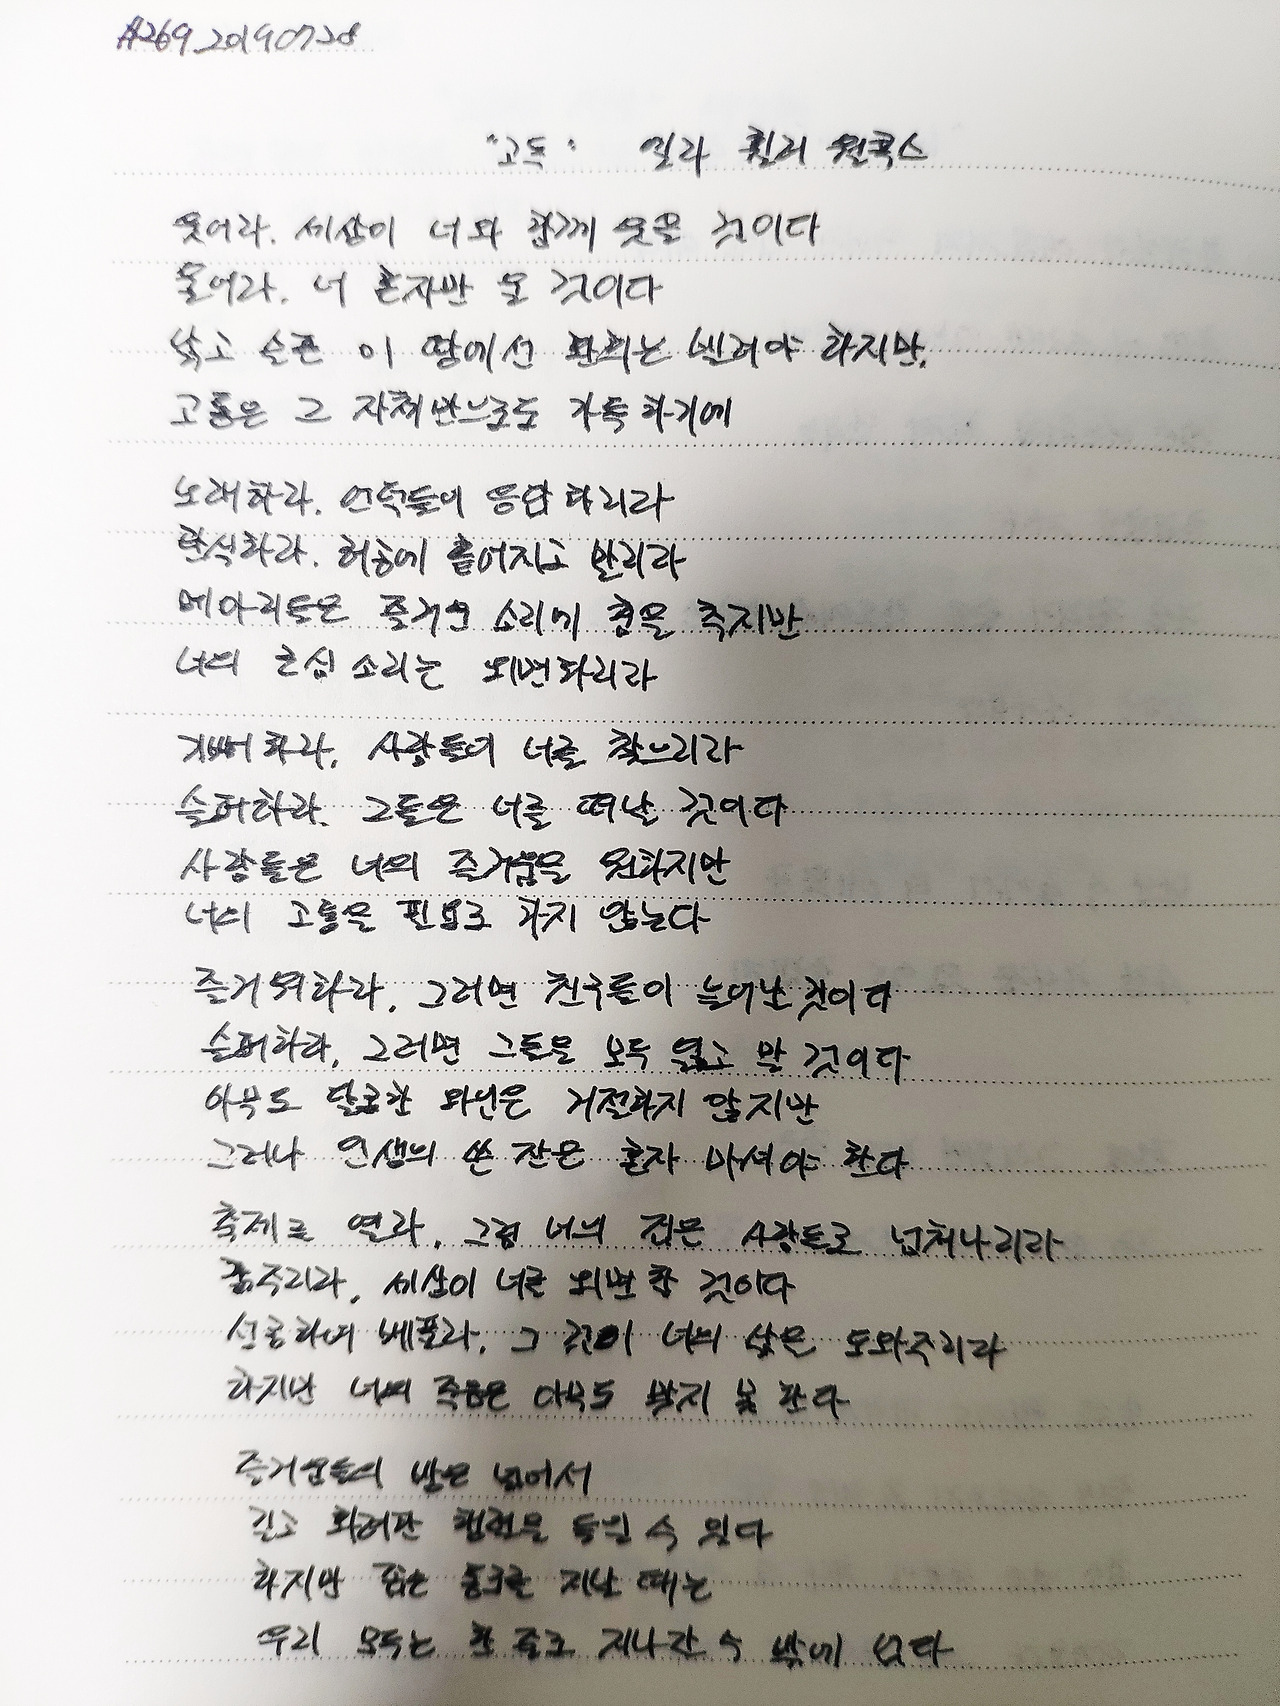 #269_20190728
"고독" 엘라 휠러 윌콕스
웃어라. 세상이 너와 함께 웃을 것이다
울어라. 너 혼자만 울 것이다
낡고 슬픈 이 땅에선 환희는 빌려야 하지만,
고통은 그 자체만으로도 가득하기에
노래하라. 언덕들이 응답하리라
탄식하라. 허공에 흩어지고 말리라
메아리들은 즐거운 소리에 춤을 추지만
너의 근심 소리는 외면하리라
기뻐하라, 사람들이 너를 찾으리라
슬퍼하라. 그들은 너를 떠날 것이다
사람들은 너의 즐거움을 원하지만
너의 고통을 필요로 하지 않는다
즐거워하라, 그러면 친구들이 늘어날 것이다
슬퍼하라, 그러면 그들을 모두 잃고 말 것이다
아무도 달콤한 와인은 거절하지 않지만
그러나 인생의 쓴 잔은 혼자 마셔야 한다
축제를 열라, 그럼 너의 집은 사람들로 넘쳐나리라
굶주리라, 세상이 너를 외면할 것이다
성공하여 베풀라, 그 것이 너의 삶은 도와주리라
하지만 너의 죽음은 아무도 막지 못 한다
즐거움들의 방은 넓어서
길고 화려한 행렬을 들일 수 있다
하지만 좁은 통로를 지날 때는
우리 모두는 한 줄로 지나갈 수 밖에 없다